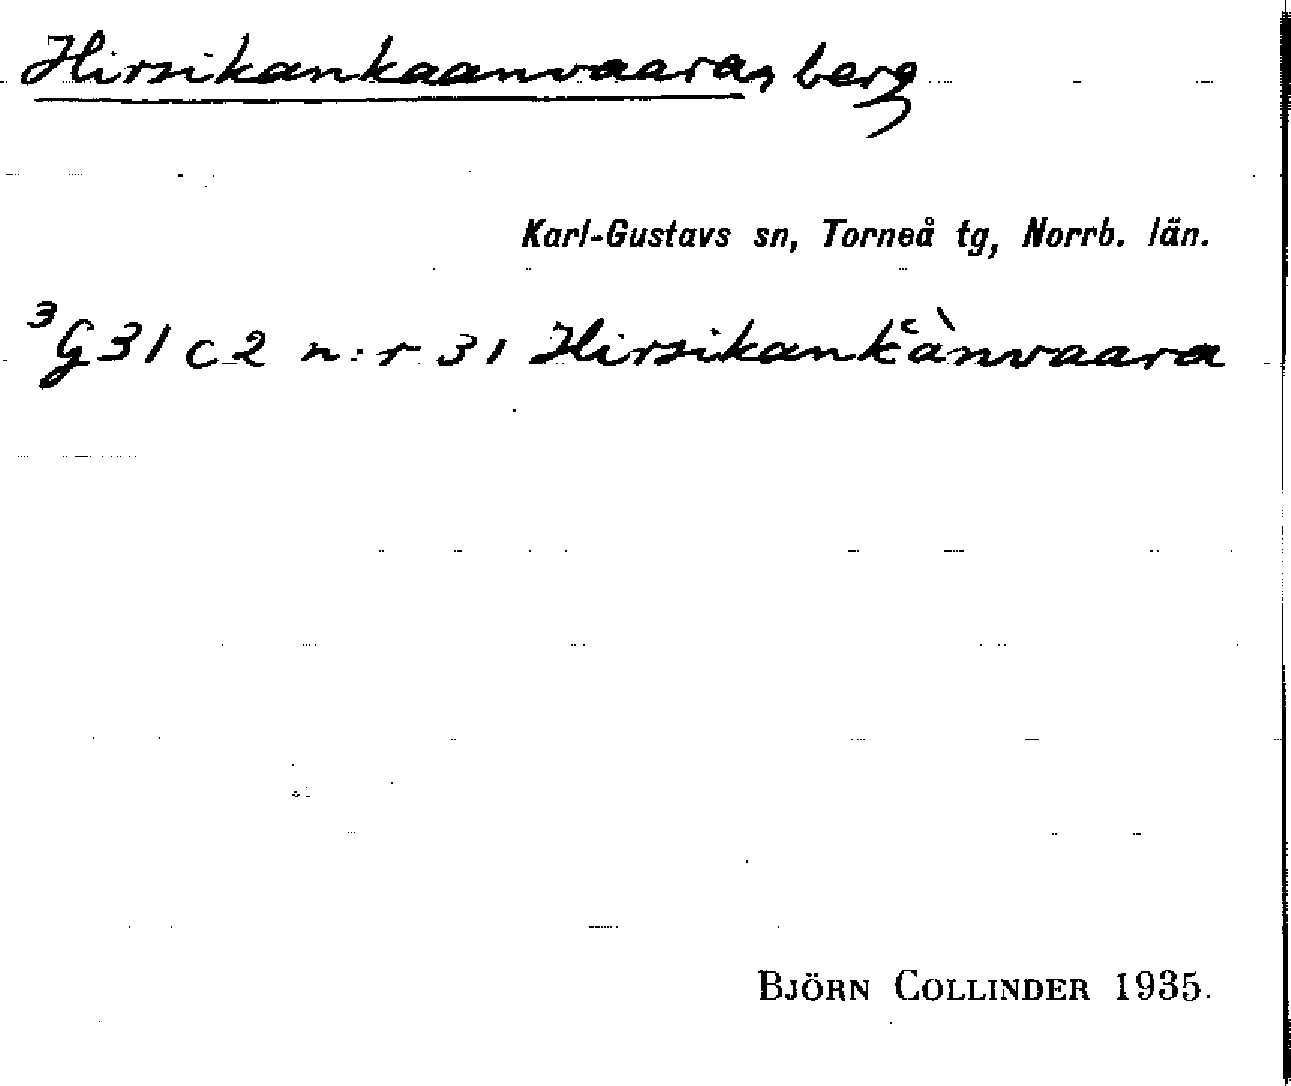 Hirsikankaanvaara, berg
Karl-Gustavs sn, Torneå tg, Norrb. län.
³G31 c2 n:r 31 Hirsikank͑ànvaara
BJÖRN COLLINDER 1935.